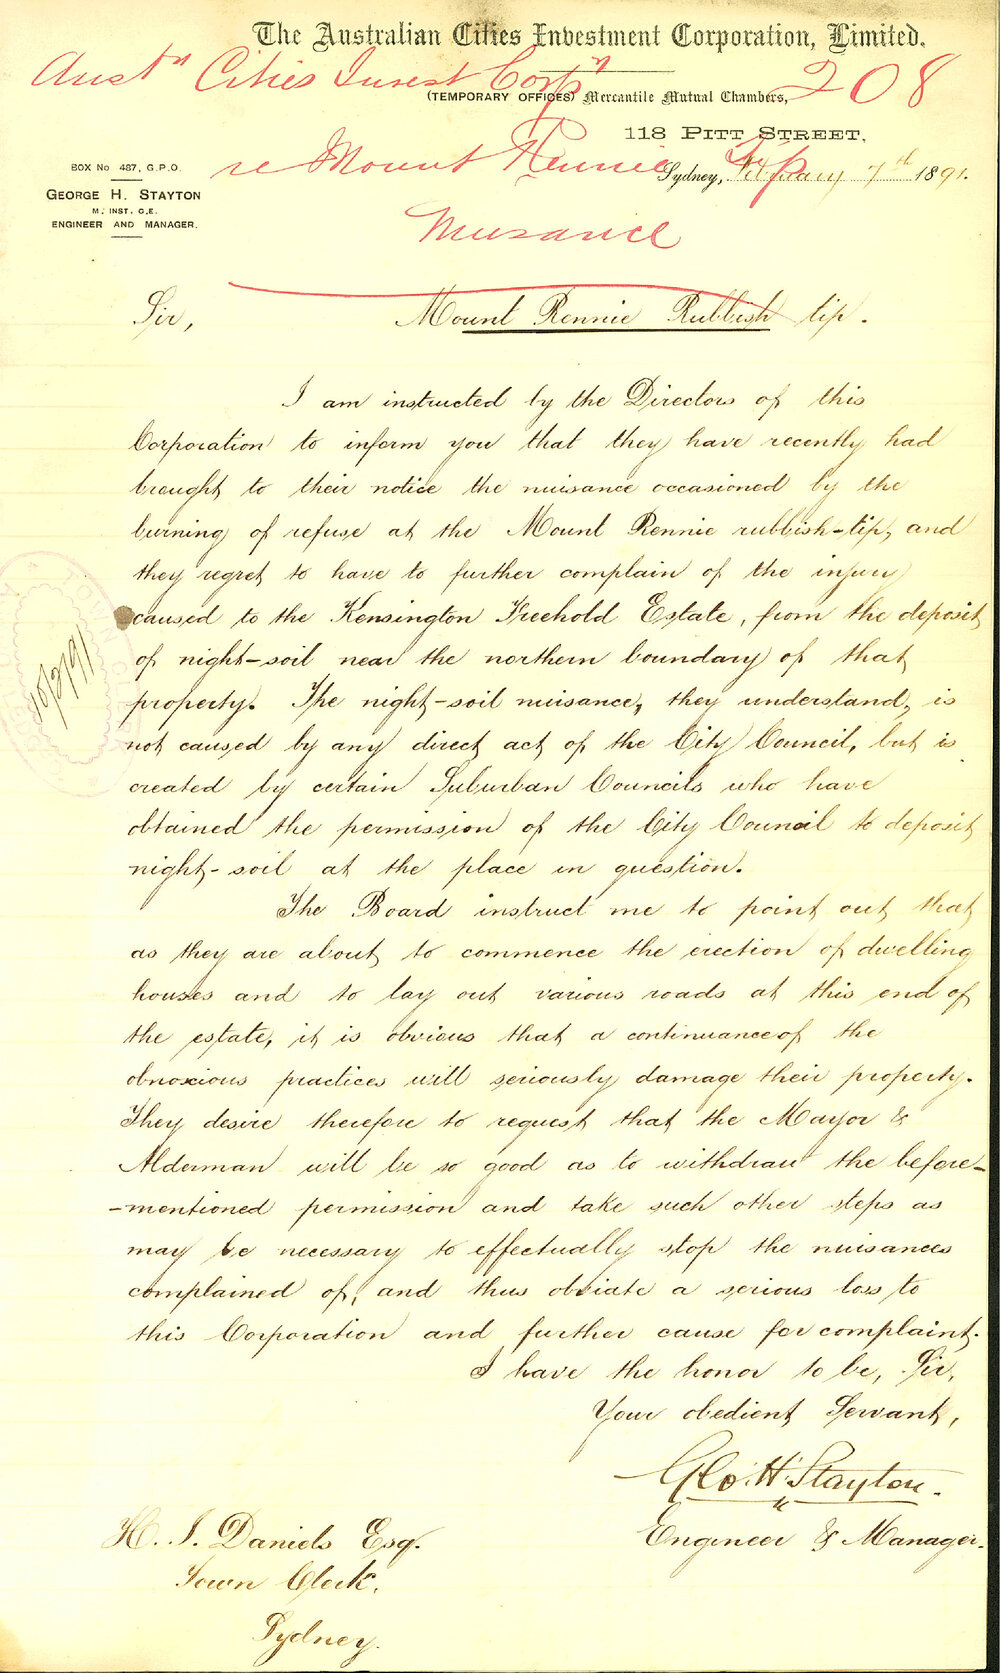 The Australian Cities Investment Corporation, Limited.
Austn Cities Invest Corpn 208
(TEMPORARY OFFICES) Mercantile Mutual Chambers,
118 PITT STREET.
re Mount Rennie Tip
Sydney, February 7th 1891.
Nuisance
BOX No 487, G.P.O.
GEORGE H. STAYTON
M. INST. C.E.
ENGINEER AND MANAGER.
Sir,
Mount Rennie Rubbish tip.
I am instructed by the Directors of this
Corporation to inform you that they have recently had
brought to their notice the nuisance occasioned by the
burning of refuse at the Mount Rennie rubbish-tip, and
they regret to have to further complain of the injury
caused to the Kensington Freehold Estate, from the deposit
of night-soil near the northern boundary of that
property. The night-soil nuisance, they understand, is
not caused by any direct act of the City Council, but is
created by certain Suburban Councils who have
obtained the permission of the City Council to deposit
night-soil at the place in question.
The Board instruct me to point out that
as they are about to commence the erection of dwelling
houses and to lay out various roads at this end of
the estate, it is obvious that a continuance of the
obnoxious practices will seriously damage their property.
They desire therefore to request that the Mayor &
Alderman will be so good as to withdraw the before-
-mentioned permission and take such other steps as
may be necessary to effectually stop the nuisances
complained of, and thus obviate a serious loss to
this Corporation and further cause for complaint.
I have the honor to be, Sir,
Your obedient Servant,
Geo. H. Stayton.
Engineer & Manager.
H. J. Daniels Esq.
Town Clerk.
Sydney.
10/2/91